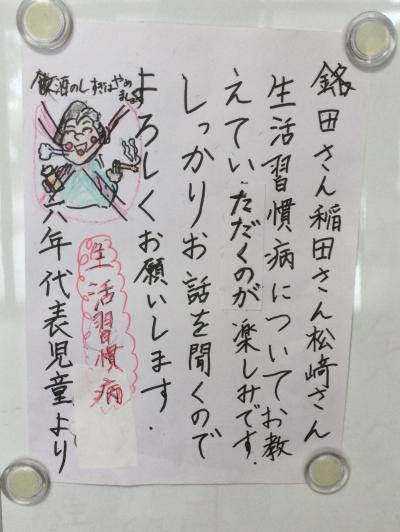 銘田さん稲田さん松崎さん
生活習慣病についてお教
えていただくのが楽しみです.
しっかりお話を聞くので
よろしくお願いします.
生活習慣病
六年代表児童より
飲酒のしすぎはやめ
ましょう